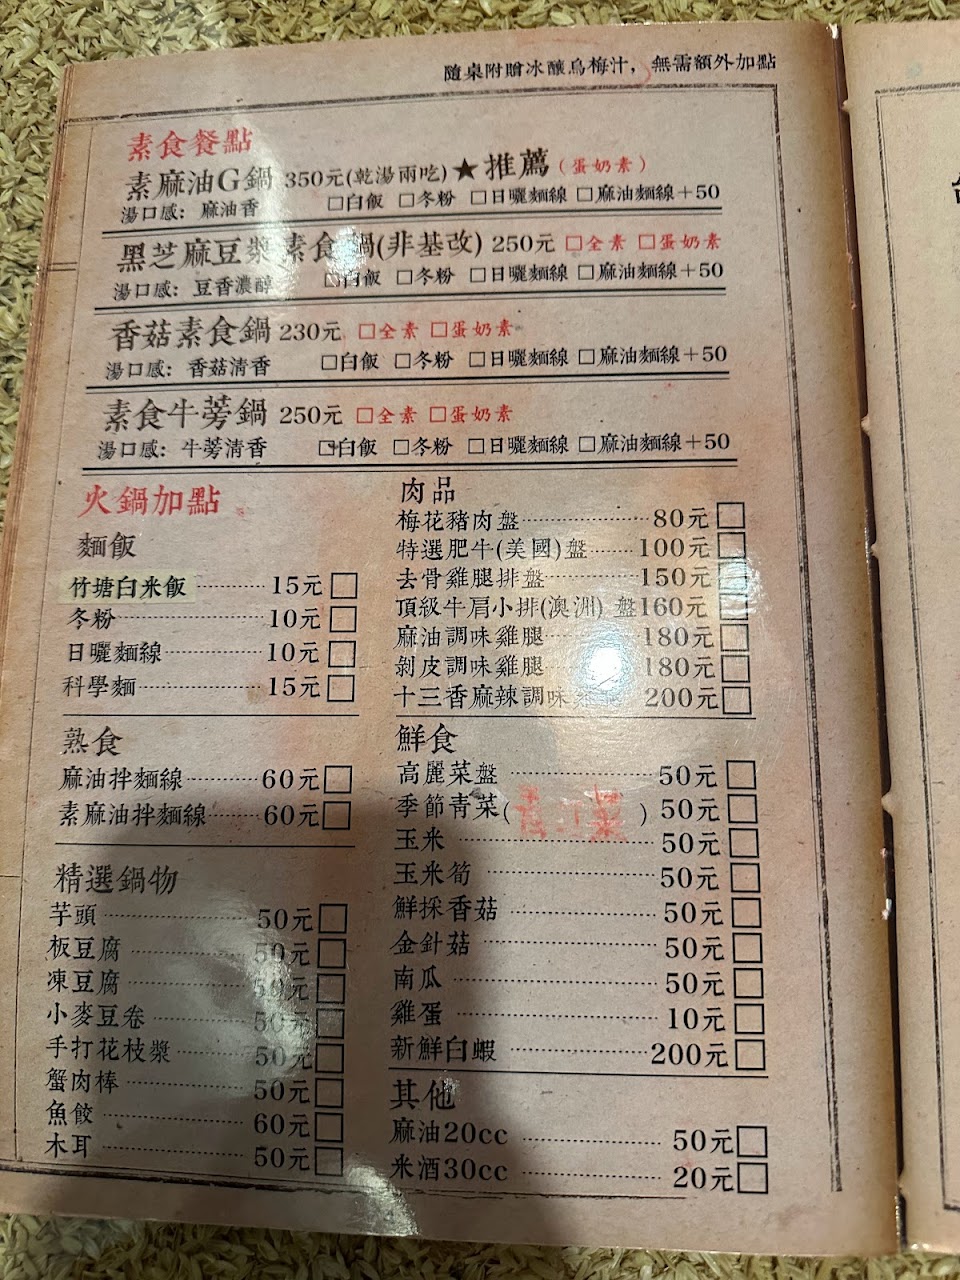 隨桌附贈冰釀烏梅汁，無需額外加點
素食餐點
素麻油G鍋 350元(乾湯兩吃)★推薦(蛋奶素)
湯口感：麻油香 □白飯 □冬粉 □日曬麵線 □麻油麵線+50
黑芝麻豆漿素食鍋(非基改) 250元 □全素 □蛋奶素
湯口感：豆香濃醇 □白飯 □冬粉 □日曬麵線 □麻油麵線+50
香菇素食鍋 230元 □全素 □蛋奶素
湯口感：香菇清香 □白飯 □冬粉 □日曬麵線 □麻油麵線+50
素食牛蒡鍋 250元 □全素 □蛋奶素
湯口感：牛蒡清香 □白飯 □冬粉 □日曬麵線 □麻油麵線+50
火鍋加點
麵飯
竹塘白米飯 15元□
冬粉 10元□
日曬麵線 10元□
科學麵 15元□
熟食
麻油拌麵線 60元□
素麻油拌麵線 60元□
精選鍋物
芋頭 50元□
板豆腐 50元□
凍豆腐 50元□
小麥豆卷 50元□
手打花枝漿 50元□
蟹肉棒 50元□
魚餃 60元□
木耳 50元□
肉品
梅花豬肉盤 80元□
特選肥牛(美國)盤 100元□
去骨雞腿排盤 150元□
頂級牛肩小排(澳洲)盤160元□
麻油調味雞腿 180元□
剝皮調味雞腿 180元□
十三香麻辣調味 200元□
鮮食
高麗菜盤 50元□
季節青菜( ) 50元□
玉米 50元□
玉米筍 50元□
鮮採香菇 50元□
金針菇 50元□
南瓜 50元□
雞蛋 10元□
新鮮白蝦 200元□
其他
麻油20cc 50元□
米酒30cc 20元□